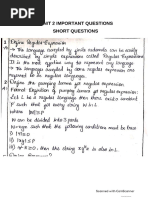 IT 2 IMPORTANT QUESTIONS
SHORT QUESTIONS
Define Regular Expression
The language accepted by finite automata can be easily
described by simple expression called Regular Expression.
It is the most effective way to represent any language.
The language accepted by some regular expression
are referred to as Regular language.
Define the pumping lemma for regular language
Let L be a regular language then there exists constant
'P' such that for every string w in L
|w| ≥ P
w can be divided into 3 parts
w=xyz such that the following conditions must be true
1) |y| > 0
2) |xy| ≤ P
Scanned with CamScanner